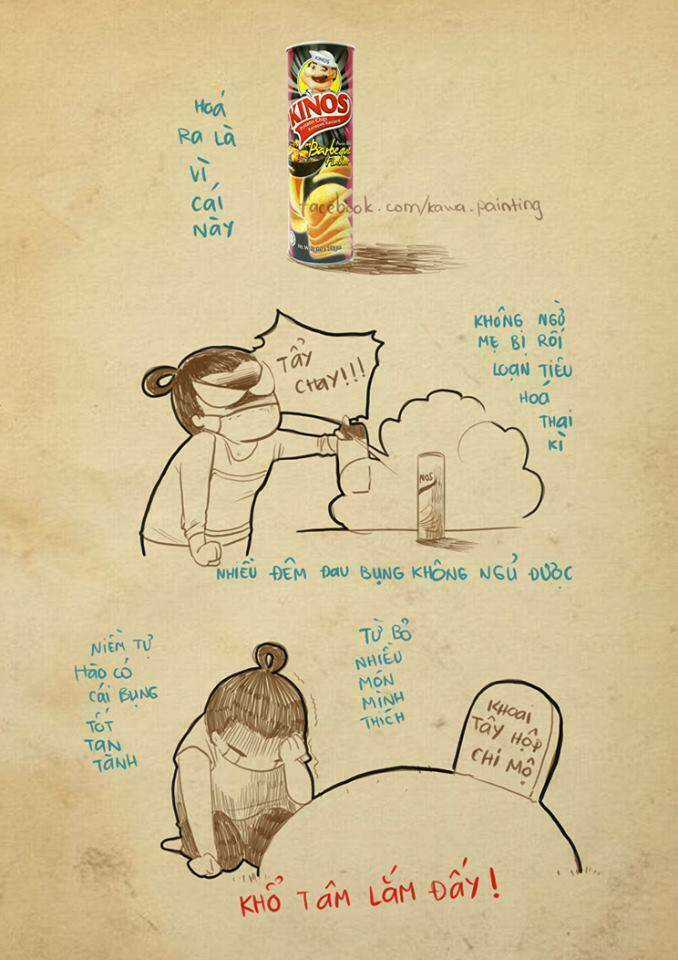 HOÁ
RA LÀ
VÌ
CÁI
NÀY
KINOS
KINOS
Barbecue
facebook.com/kawa.painting
TẨY
CHAY!!!
KHÔNG NGỜ
MẸ BỊ RỐI
LOẠN TIÊU
HOÁ
THAI
KÌ
NOS
NHIỀU ĐÊM ĐAU BỤNG KHÔNG NGỦ ĐƯỢC
NIỀM TỰ
HÀO CÓ
CÁI BỤNG
TỐT
TAN
TÀNH
TỪ BỎ
NHIỀU
MÓN
MÌNH
THÍCH
KHOAI
TÂY HỘP
CHI MỘ
KHỔ TÂM LẮM ĐẤY!